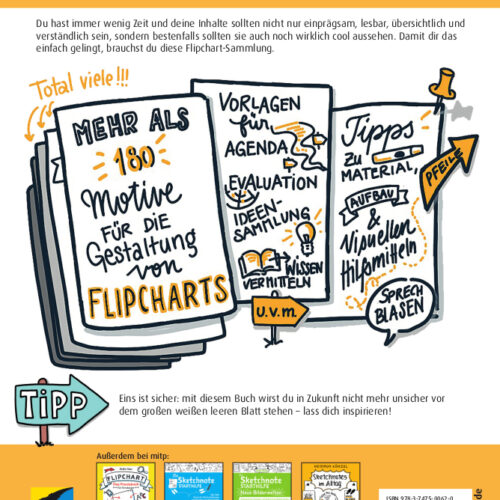 Du hast immer wenig Zeit und deine Inhalte sollten nicht nur einprägsam, lesbar, übersichtlich und
verständlich sein, sondern bestenfalls sollten sie auch noch wirklich cool aussehen. Damit dir das
einfach gelingt, brauchst du diese Flipchart-Sammlung.
Total viele!!!
MEHR ALS
180
Motive
FÜR DIE
Gestaltung
von
FLIPCHARTS
VORLAGEN
für
AGENDA
EVALUATION
IDEEN-
SAMMLUNG
WISSEN
VERMITTELN
U.V.M.
Tipps
ZU
MATERIAL,
AUFBAU
&
Visuellen
Hilfsmitteln
PFEILE
SPRECH
BLASEN
TIPP
Eins ist sicher: mit diesem Buch wirst du in Zukunft nicht mehr unsicher vor
dem großen weißen leeren Blatt stehen – lass dich inspirieren!
Außerdem bei mitp:
FLIPCHART
Sketchnote
STARTHILFE
Sketchnote
STARTHILFE
Neue Bilderwelten
Sketchnotes
im Alltag